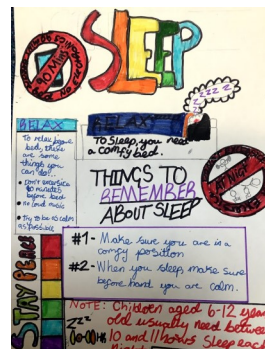 SLEEP
90 Mins
RELAX
To relax before
bed, there
are some
things you
can do...
before bed
no loud music
try to be as calm
as possible
RELAX
To Sleep, you need
a comfy bed.
zzzz
THINGS TO
REMEMBER
ABOUT SLEEP
STAY PEACE
#1- Make sure you are in a
comfy position
#2- When you sleep make sure
before hand you are calm.
NOTE: Children aged 6-12 years
old usually need between
10 and 11 hours sleep each
zzz